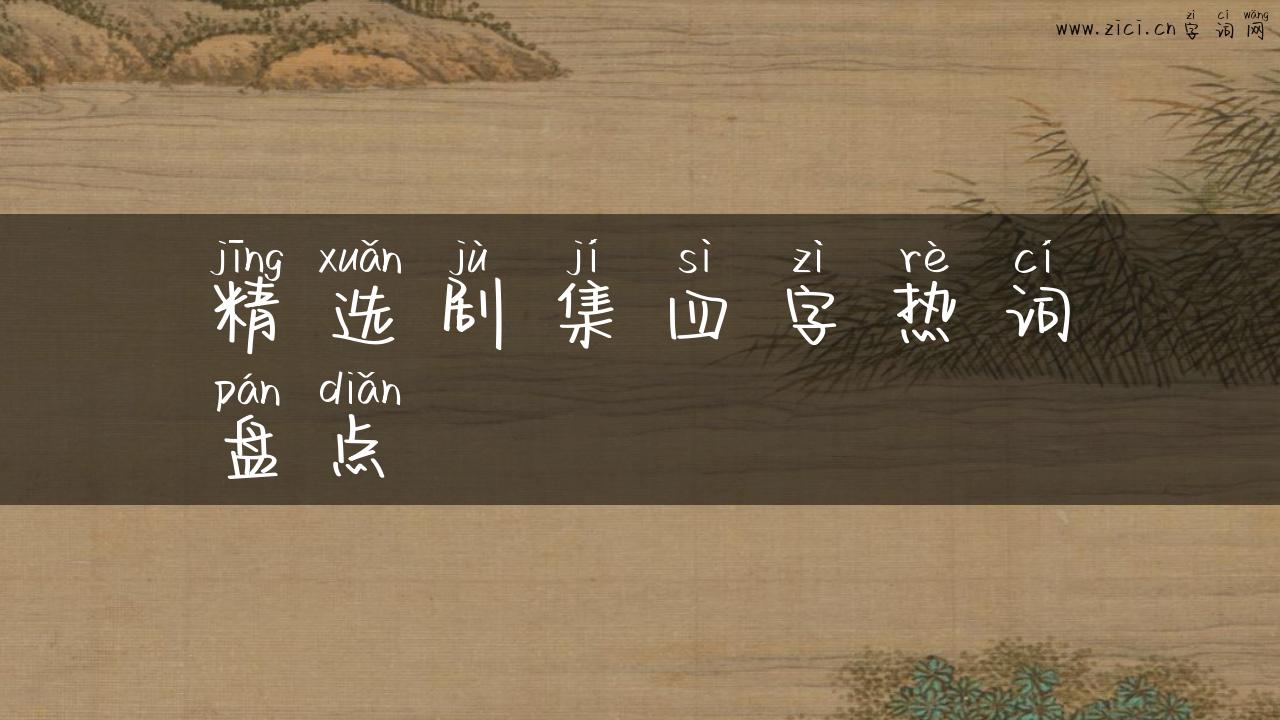 www.zici.cn zì cí wǎng
字词网
jīng xuǎn jù jí sì zì rè cí
精选剧集四字热词
pán diǎn
盘点